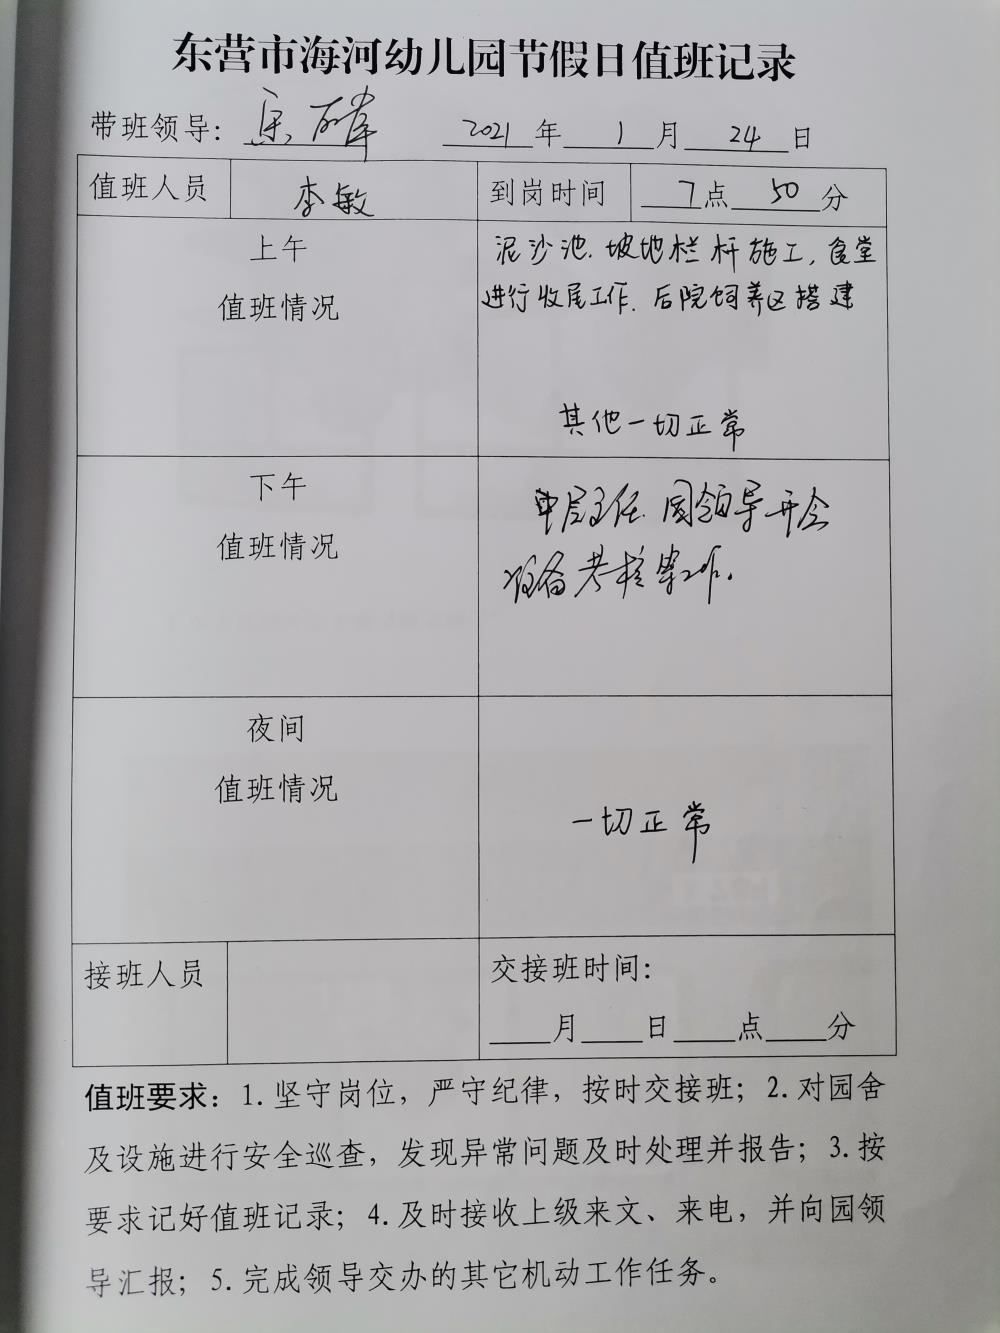 东营市海河幼儿园节假日值班记录
带班领导： 2021 年 1 月 24 日
值班人员 李敏 到岗时间 7 点 50 分
上午
值班情况
泥沙池.坡地栏杆施工,食堂
进行收尾工作.后院饲养区搭建
其他一切正常
下午
值班情况
中层主任.园领导开会
设备考核等工作.
夜间
值班情况
一切正常
接班人员
交接班时间：
月 日 点 分
值班要求：1.坚守岗位，严守纪律，按时交接班；2.对园舍
及设施进行安全巡查，发现异常问题及时处理并报告；3.按
要求记好值班记录；4.及时接收上级来文、来电，并向园领
导汇报；5.完成领导交办的其它机动工作任务。